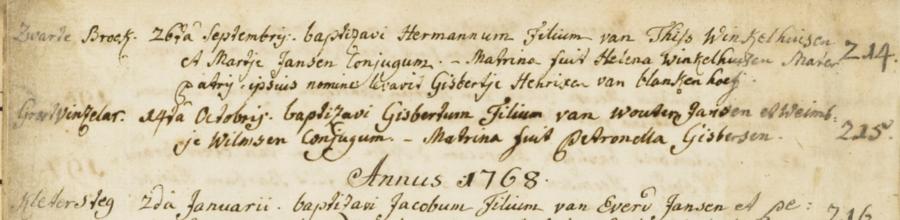 Zwarte Broek. 26ta Septembrij. baptizavi Hermannum Filium van Thijs Winkelhuisen 214.
et Martje Jansen Conjugum. - Matrina fuit Helena Winkelhuisen Mater
patrij. ipsius nomine levavit Gisbertje Henrixen van blankenhoef.
Groot Winkelar. 14ta Octobrij. baptizavi Gisbertum Filium van wouter Jansen et Weimb: 215.
je Wilmsen Conjugum. - Matrina fuit Petronella Gisbersen.
Annus 1768.
Kletersteg 2da Januarii. baptizavi Jacobum Filium van Everd Jansen et pe: 216